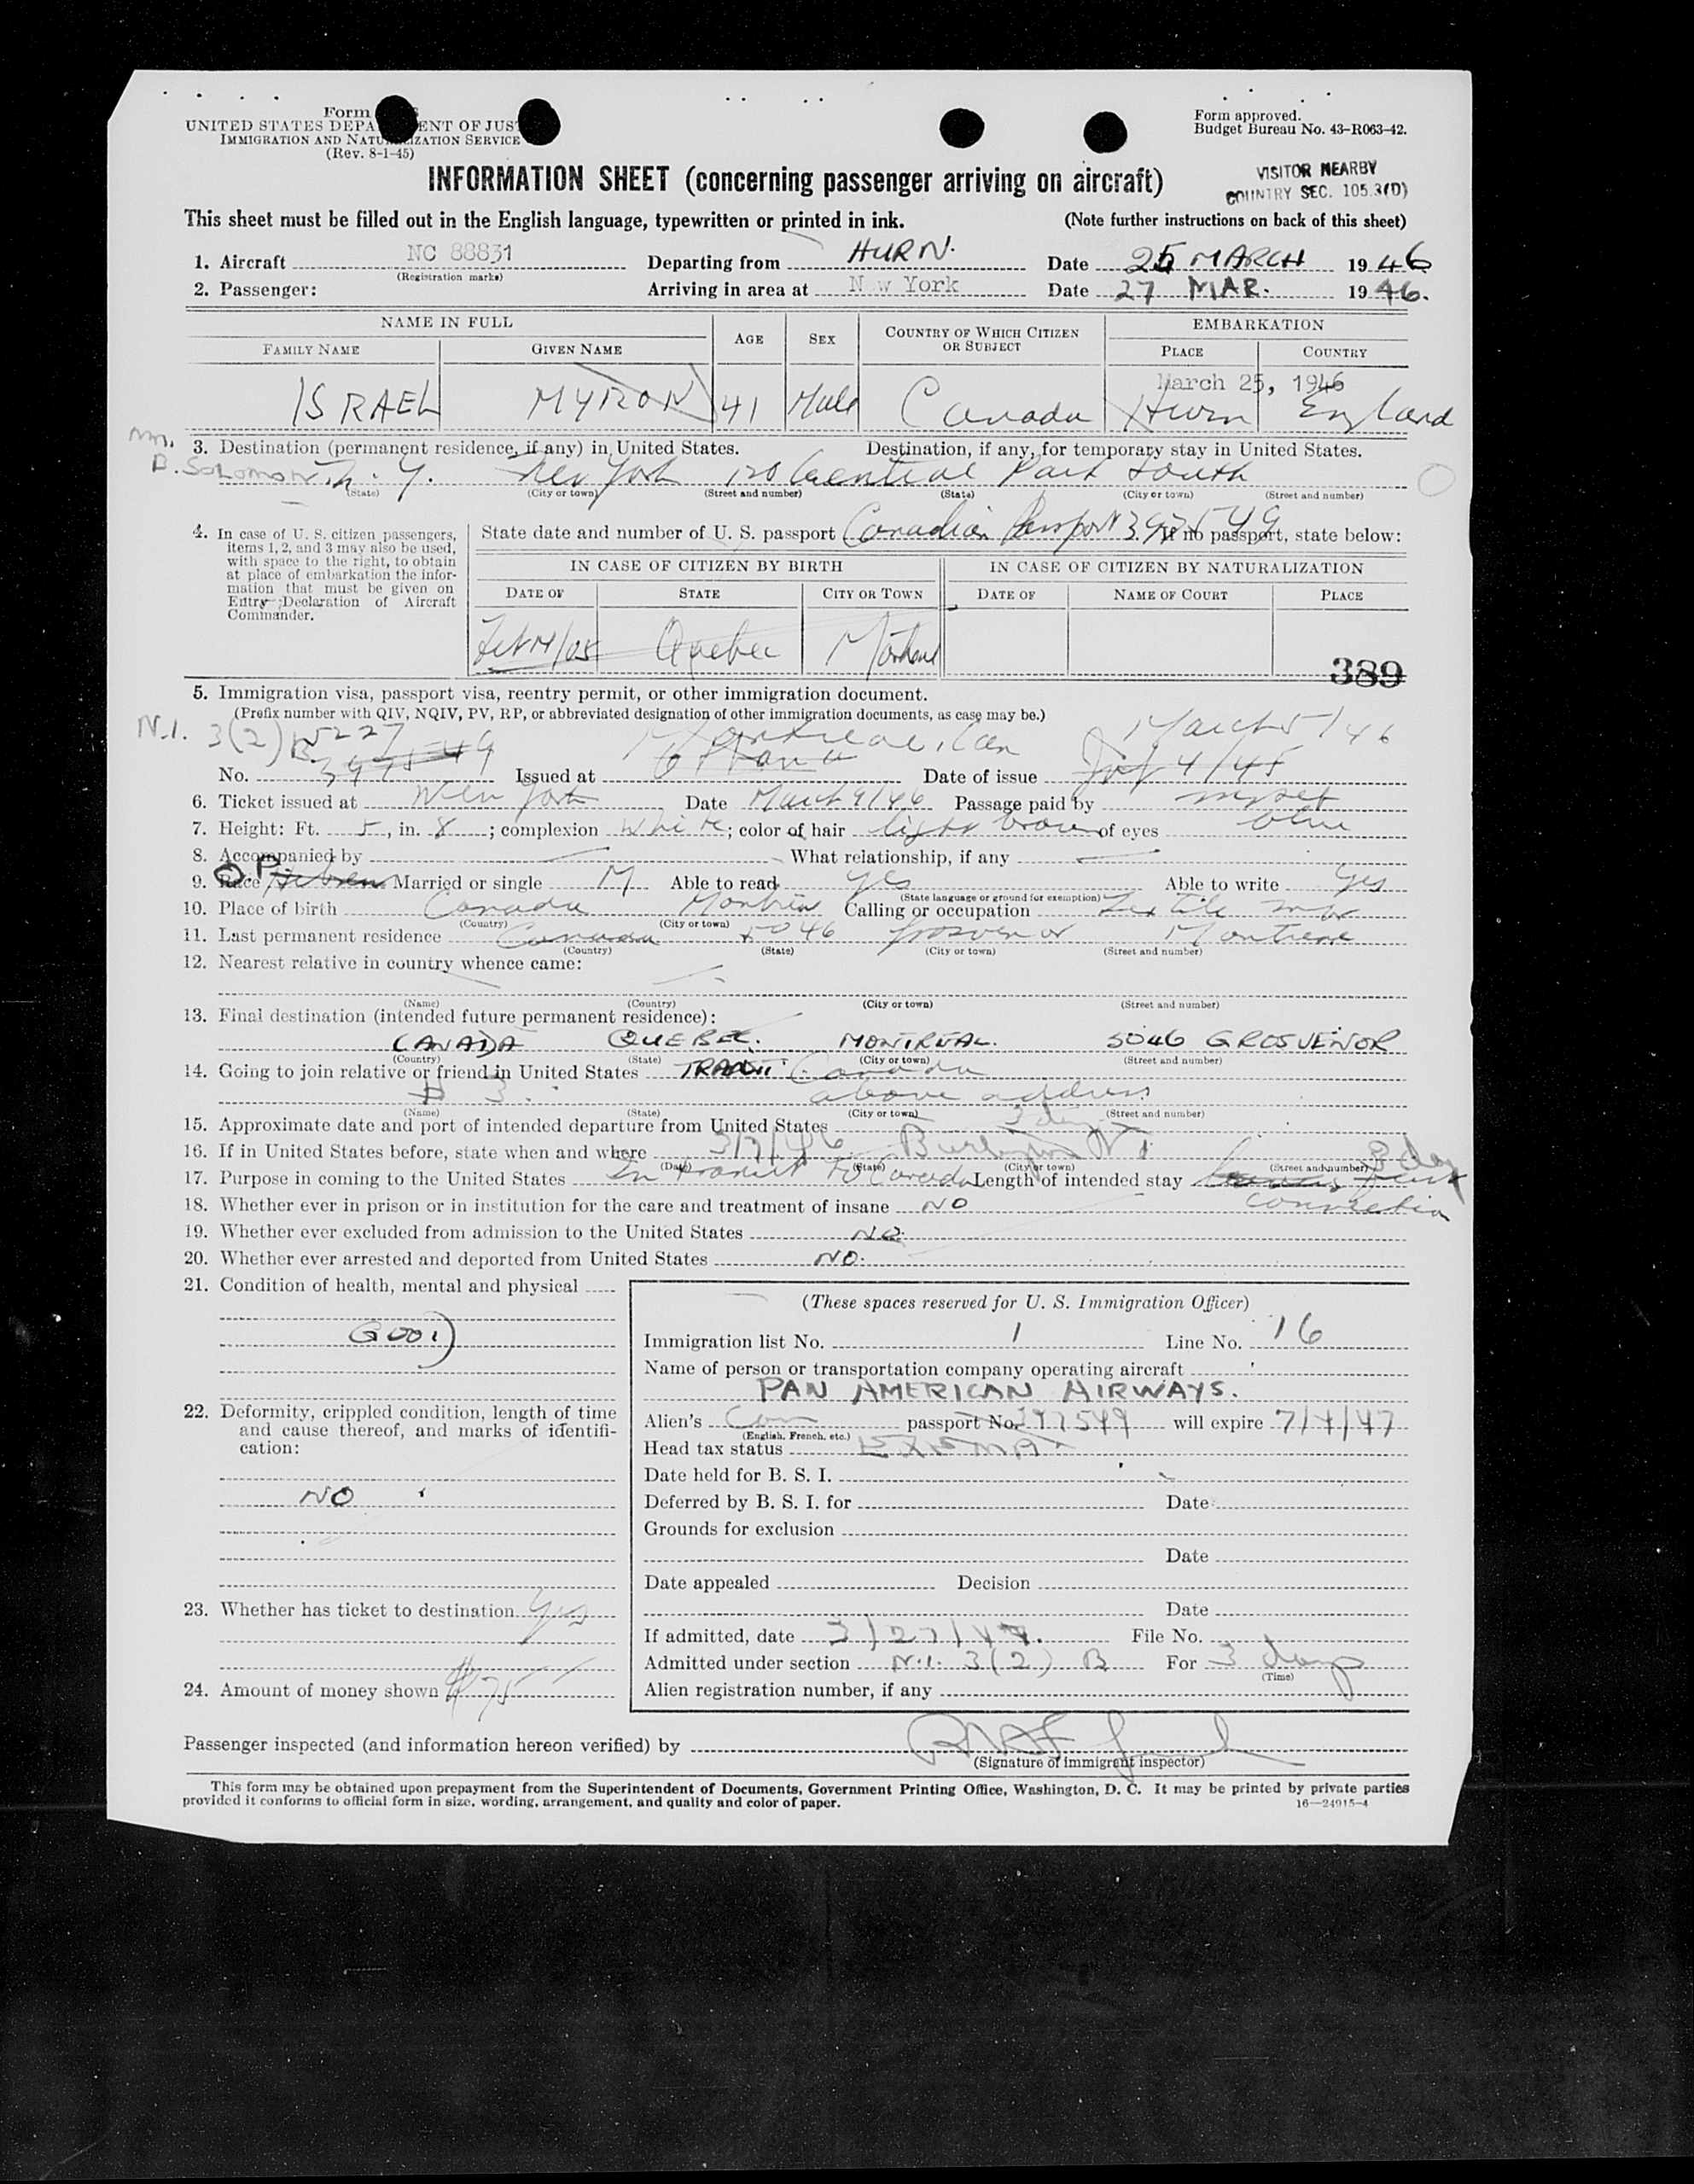 Form
UNITED STATES DEPA ENT OF JUS
IMMIGRATION AND NATU IZATION SERVICE
(Rev. 8-1-45)
Form approved.
Budget Bureau No. 43-R063-42.
INFORMATION SHEET (concerning passenger arriving on aircraft)
VISITOR NEARBY
COUNTRY SEC. 105.3(D)
This sheet must be filled out in the English language, typewritten or printed in ink. (Note further instructions on back of this sheet)
1. Aircraft NC 88831 Departing from HURN. Date 25 MARCH 1946
(Registration marks)
2. Passenger: Arriving in area at N w York Date 27 MAR. 1946.
NAME IN FULL AGE SEX COUNTRY OF WHICH CITIZEN OR SUBJECT EMBARKATION
FAMILY NAME GIVEN NAME PLACE COUNTRY
March 25, 1946
ISRAEL MYRON 41 Male Canada Hurn England
3. Destination (permanent residence, if any) in United States. Destination, if any, for temporary stay in United States.
D. SOLOMON N.Y. New York 120 Central Park South
(State) (City or town) (Street and number) (State) (City or town) (Street and number)
4. In case of U. S. citizen passengers, items 1, 2, and 3 may also be used, with space to the right, to obtain at place of embarkation the information that must be given on Entry Declaration of Aircraft Commander.
State date and number of U. S. passport Canadian Passport 397549 If no passport, state below:
IN CASE OF CITIZEN BY BIRTH IN CASE OF CITIZEN BY NATURALIZATION
DATE OF STATE CITY OR TOWN DATE OF NAME OF COURT PLACE
Feb 14/05 Quebec Montreal
389
5. Immigration visa, passport visa, reentry permit, or other immigration document.
(Prefix number with QIV, NQIV, PV, RP, or abbreviated designation of other immigration documents, as case may be.)
N.I. 3(2) B V227 Montreal, Can March 5/46
No. 397549 Issued at Ottawa Date of issue July 4/45
6. Ticket issued at New York Date March 9/46 Passage paid by myself
7. Height: Ft. 5, in. 8; complexion White; color of hair light brown of eyes blue
8. Accompanied by What relationship, if any
9. Race Hebrew O.P. Married or single M Able to read yes Able to write yes
(State language or ground for exemption)
10. Place of birth Canada Montreal Calling or occupation Textile mfr
(Country) (City or town)
11. Last permanent residence Canada 5046 Grosvenor Montreal
(Country) (State) (City or town) (Street and number)
12. Nearest relative in country whence came:
(Name) (Country) (City or town) (Street and number)
13. Final destination (intended future permanent residence):
CANADA QUEBEC. MONTREAL. 5046 GROSVENOR
(Country) (State) (City or town) (Street and number)
14. Going to join relative or friend in United States TRANSIT Canada
# 3. above address
(Name) (State) (City or town) (Street and number)
15. Approximate date and port of intended departure from United States 3 days
16. If in United States before, state when and where 3/7/46 Burlington VT
(Date) (State) (City or town) (Street and number)
17. Purpose in coming to the United States In transit to Canada Length of intended stay 3 day
connection
18. Whether ever in prison or in institution for the care and treatment of insane NO
19. Whether ever excluded from admission to the United States NO.
20. Whether ever arrested and deported from United States NO.
21. Condition of health, mental and physical
GOOD
22. Deformity, crippled condition, length of time and cause thereof, and marks of identification:
NO
23. Whether has ticket to destination Yes
24. Amount of money shown $75
(These spaces reserved for U. S. Immigration Officer)
Immigration list No. 1 Line No. 16
Name of person or transportation company operating aircraft
PAN AMERICAN AIRWAYS.
Alien's Can passport No. 397549 will expire 7/4/47
(English, French, etc.)
Head tax status EXEMPT
Date held for B. S. I.
Deferred by B. S. I. for Date
Grounds for exclusion
Date
Date appealed Decision
Date
If admitted, date 3/27/47. File No.
Admitted under section N.I. 3(2) B For 3 days
(Time)
Alien registration number, if any
Passenger inspected (and information hereon verified) by
(Signature of immigrant inspector)
This form may be obtained upon prepayment from the Superintendent of Documents, Government Printing Office, Washington, D. C. It may be printed by private parties
provided it conforms to official form in size, wording, arrangement, and quality and color of paper.
16—24915-4